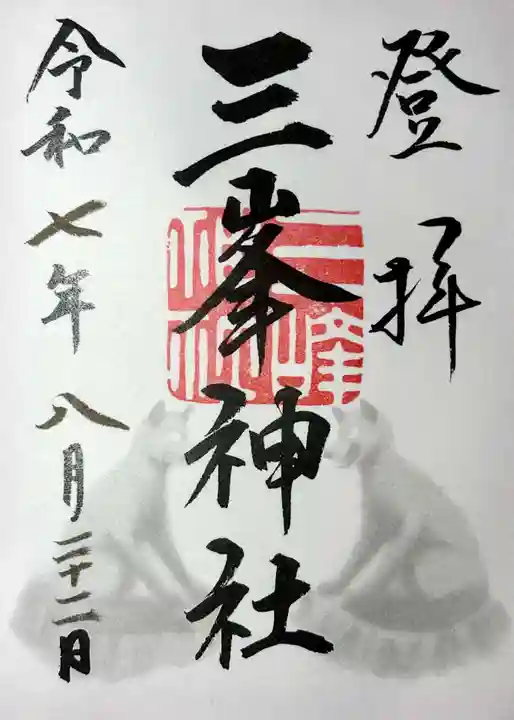 登拝
三峯神社
三峰神社
令和七年八月二十二日